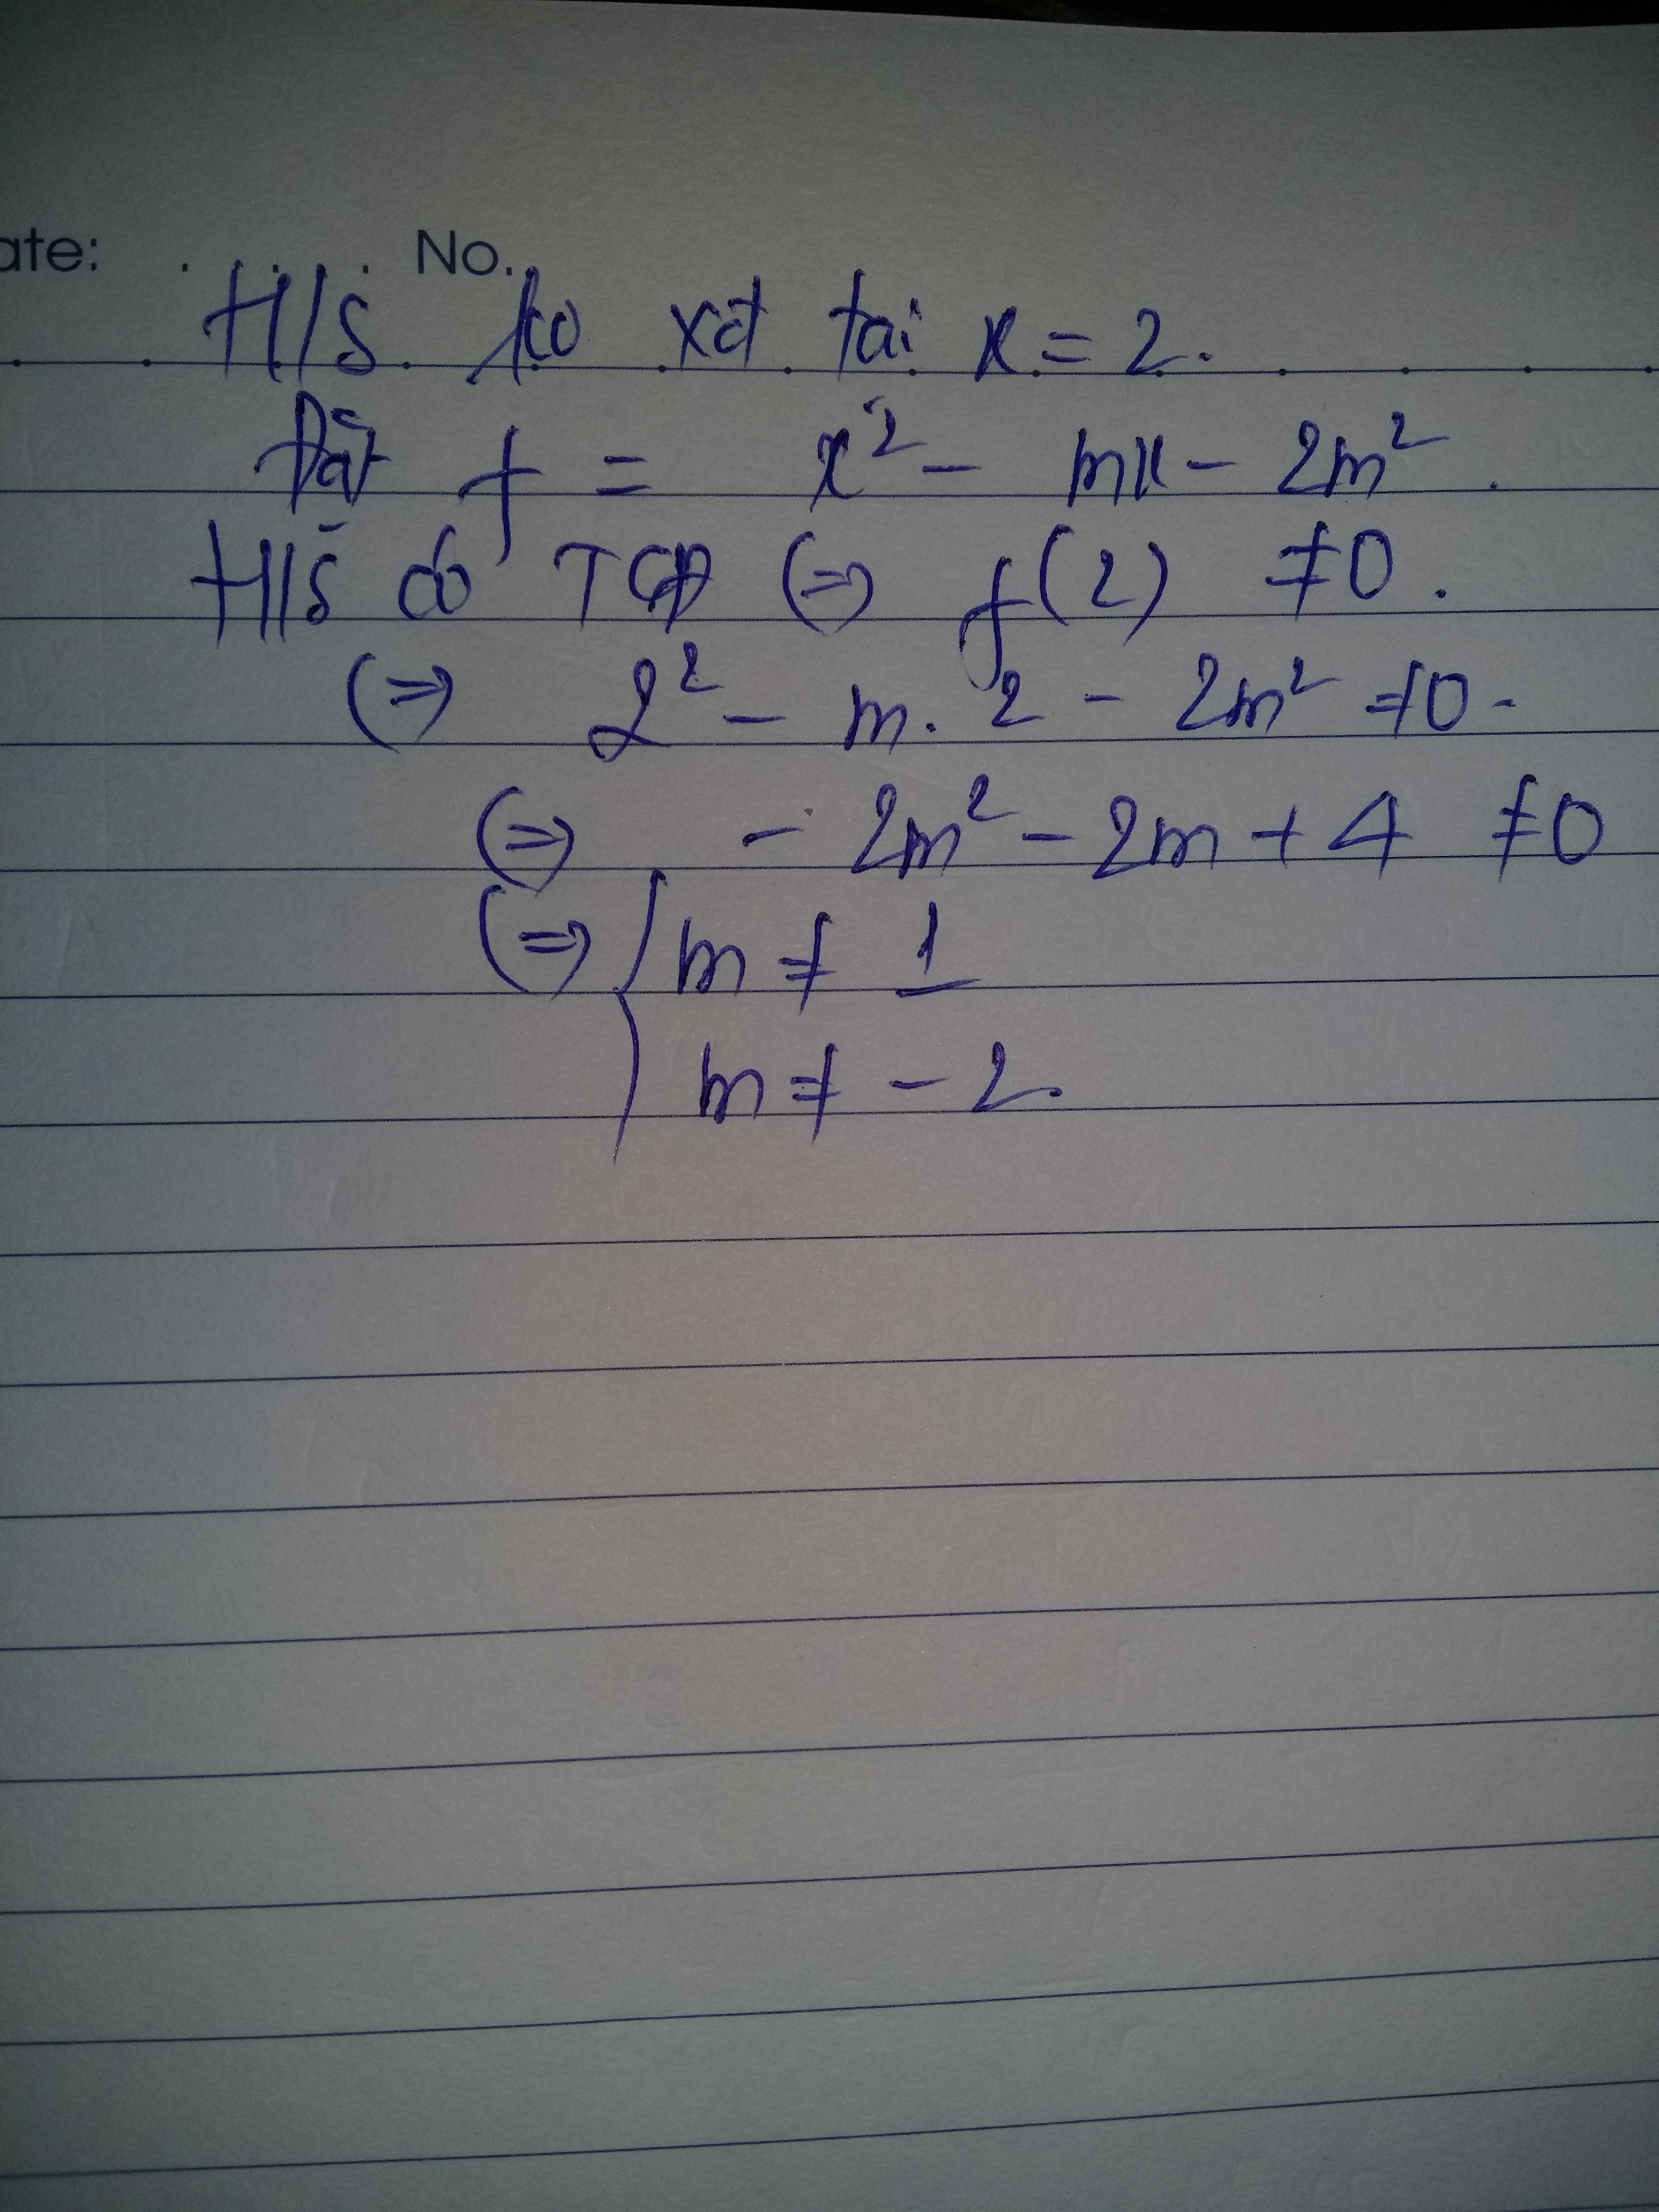 ate: . . . . No.
H/S ko xđ tại x = 2.
Đặt f = x² - mx - 2m².
H/S có TCĐ (=) f(2) ≠ 0.
(=) 2² - m. 2 - 2m² ≠ 0.
(=) - 2m² - 2m + 4 ≠ 0
(=) { m ≠ 1
m ≠ - 2.